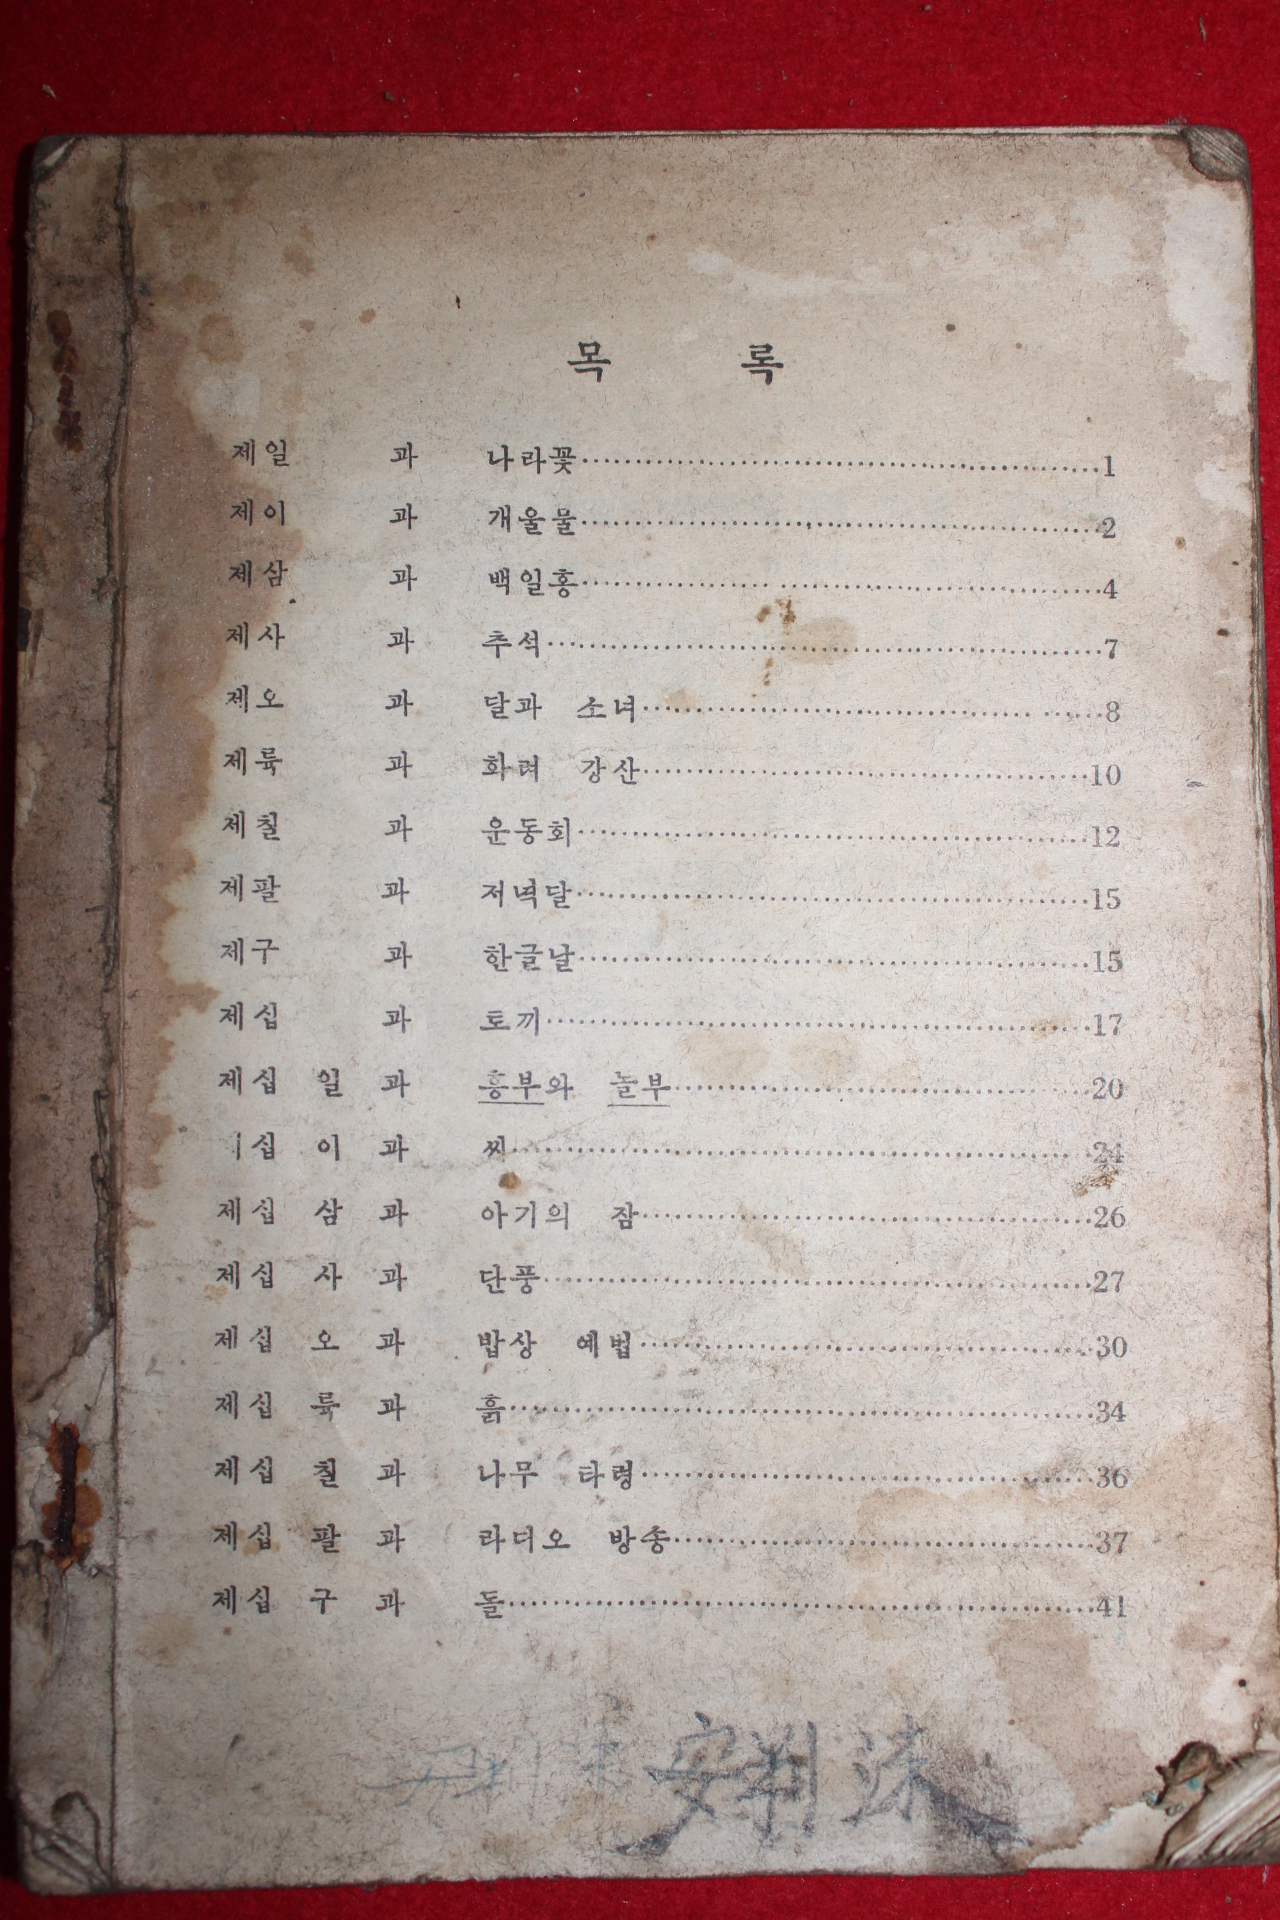 목 록
제일 과 나라꽃 1
제이 과 개울물 2
제삼 과 백일홍 4
제사 과 추석 7
제오 과 달과 소녀 8
제륙 과 화려 강산 10
제칠 과 운동회 12
제팔 과 저녁달 15
제구 과 한글날 15
제십 과 토끼 17
제십 일 과 흥부와 놀부 20
십 이 과 씨 24
제십 삼 과 아기의 잠 26
제십 사 과 단풍 27
제십 오 과 밥상 예법 30
제십 륙 과 흙 34
제십 칠 과 나무 타령 36
제십 팔 과 라디오 방송 37
제십 구 과 돌 41
安